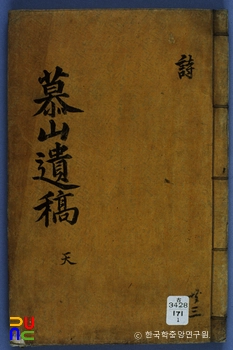 詩
慕山遺稿
天
共三
3428
171
1
ⓒ 한국학중앙연구원